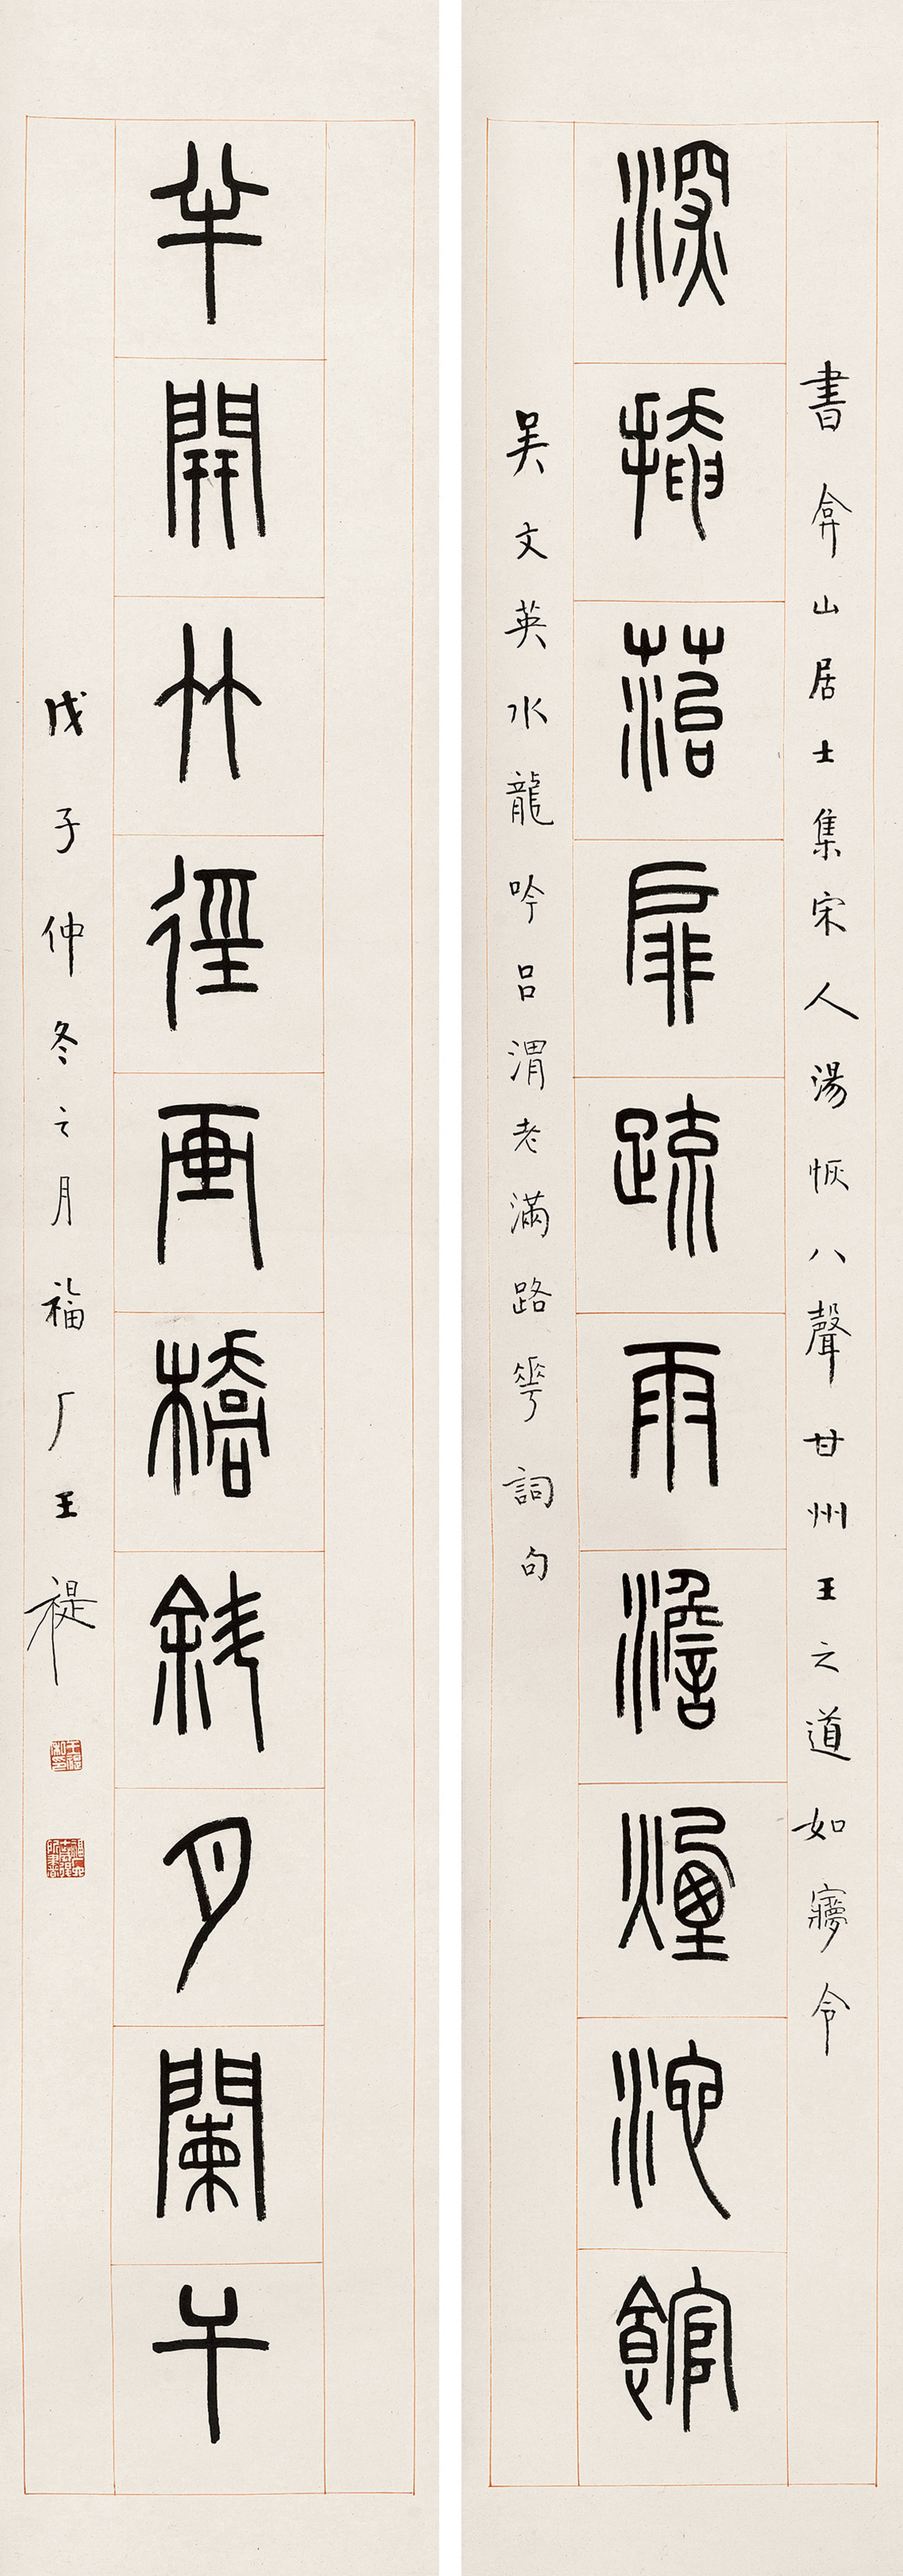 深插菭扉疏雨澹煙池館
書弇山居士集宋人湯恢八聲甘州王之道如㝱令
吳文英水龍吟呂渭老滿路華詞句
半開竹徑画橋斜月闌干
戊子仲冬之月福厂王禔
王禔私印